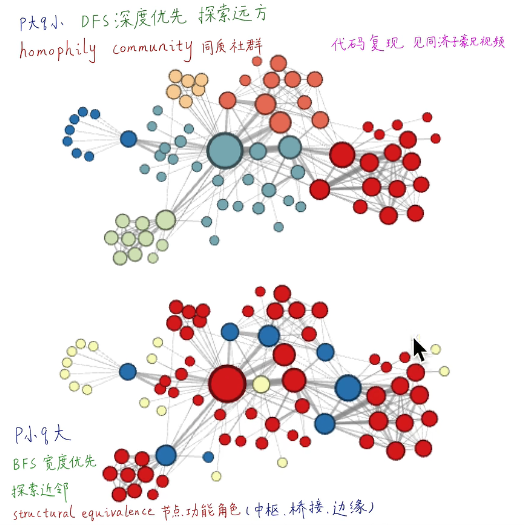 P大q小 DFS深度优先 探索远方
homophily community 同质社群
代码复现 见同济子豪兄视频
P小q大
BFS 宽度优先
探索近邻
structural equivalence 节点功能角色(中枢、桥接、边缘)